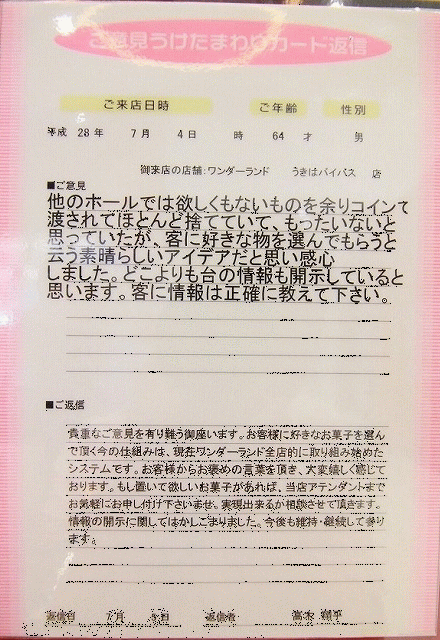 ご意見うけたまわりカード返信
ご来店日時 ご年齢 性別
平成 28 年 7 月 4 日 時 64 才 男
御来店の店舗:ワンダーランド うきはバイパス 店
■ご意見
他のホールでは欲しくもないものを余りコインで
渡されてほとんど捨てていて、もったいないと
思っていたが、客に好きな物を選んでもらうと
云う素晴らしいアイデアだと思い感心
しました。どこよりも台の情報も開示していると
思います。客に情報は正確に教えて下さい。
■ご返信
貴重なご意見を有り難う御座います。お客様に好きなお菓子を選ん
で頂く今の仕組みは、現在ワンダーランド全店的に取り組み始めた
システムです。お客様からお褒めの言葉を頂き、大変嬉しく感じて
おります。もし置いて欲しいお菓子があれば、当店アテンダントまで
お気軽にお申し付け下さいませ。実現出来るか相談させて頂きます。
情報の開示に関してはかしこまりました。今後も維持・継続して参り
ます。
返信日 7月 日 返信者